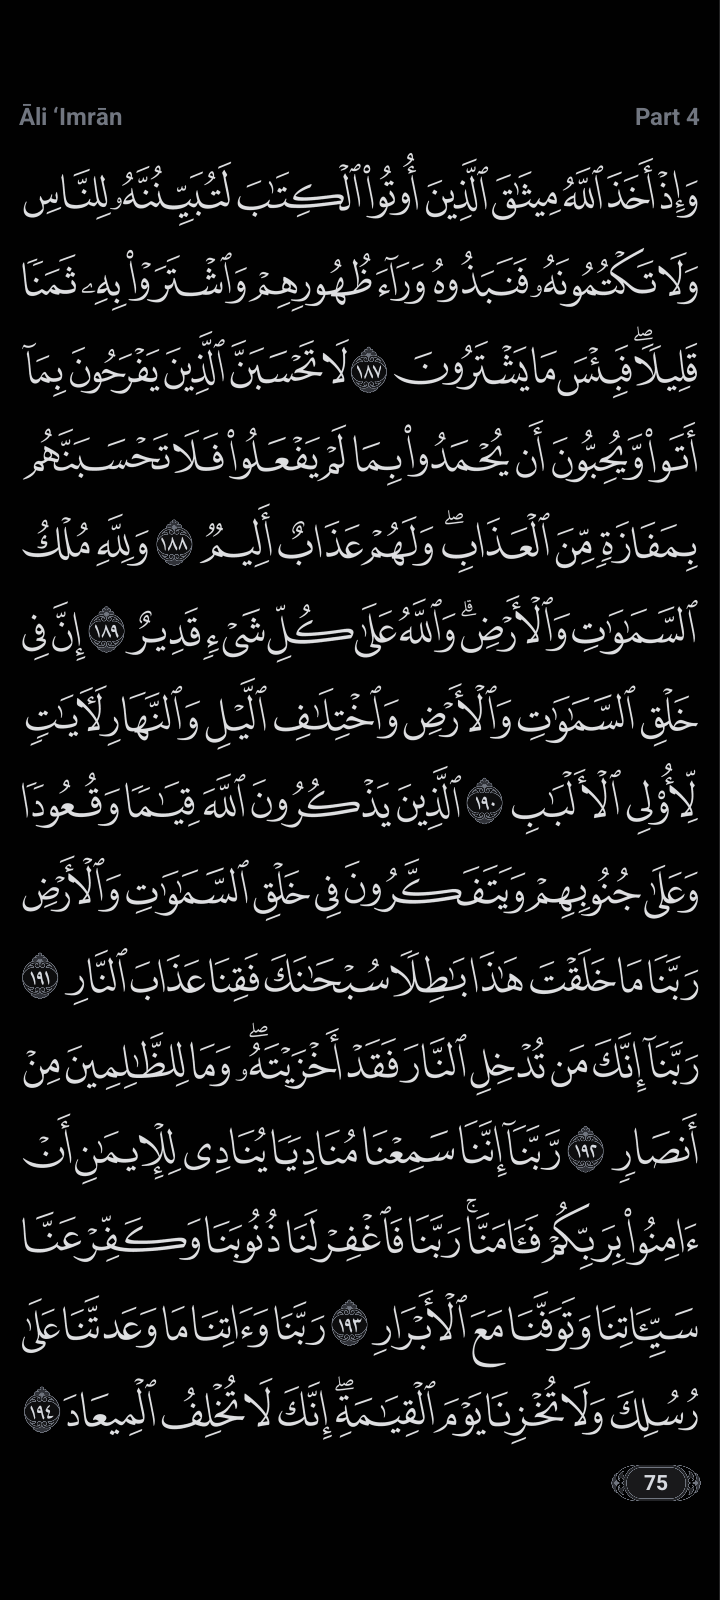 Āli ‘Imrān Part 4
وَإِذۡ أَخَذَ ٱللَّهُ مِيثَٰقَ ٱلَّذِينَ أُوتُواْ ٱلۡكِتَٰبَ لَتُبَيِّنُنَّهُۥ لِلنَّاسِ
وَلَا تَكۡتُمُونَهُۥ فَنَبَذُوهُ وَرَآءَ ظُهُورِهِمۡ وَٱشۡتَرَوۡاْ بِهِۦ ثَمَنٗا
قَلِيلٗاۖ فَبِئۡسَ مَا يَشۡتَرُونَ ١٨٧ لَا تَحۡسَبَنَّ ٱلَّذِينَ يَفۡرَحُونَ بِمَآ
أَتَواْ وَّيُحِبُّونَ أَن يُحۡمَدُواْ بِمَا لَمۡ يَفۡعَلُواْ فَلَا تَحۡسَبَنَّهُم
بِمَفَازَةٖ مِّنَ ٱلۡعَذَابِۖ وَلَهُمۡ عَذَابٌ أَلِيمٞ ١٨٨ وَلِلَّهِ مُلۡكُ
ٱلسَّمَٰوَٰتِ وَٱلۡأَرۡضِۗ وَٱللَّهُ عَلَىٰ كُلِّ شَيۡءٖ قَدِيرٌ ١٨٩ إِنَّ فِي
خَلۡقِ ٱلسَّمَٰوَٰتِ وَٱلۡأَرۡضِ وَٱخۡتِلَٰفِ ٱلَّيۡلِ وَٱلنَّهَارِ لَأٓيَٰتٖ
لِّأُوْلِي ٱلۡأَلۡبَٰبِ ١٩٠ ٱلَّذِينَ يَذۡكُرُونَ ٱللَّهَ قِيَٰمٗا وَقُعُودٗا
وَعَلَىٰ جُنُوبِهِمۡ وَيَتَفَكَّرُونَ فِي خَلۡقِ ٱلسَّمَٰوَٰتِ وَٱلۡأَرۡضِ
رَبَّنَا مَا خَلَقۡتَ هَٰذَا بَٰطِلٗا سُبۡحَٰنَكَ فَقِنَا عَذَابَ ٱلنَّارِ ١٩١
رَبَّنَآ إِنَّكَ مَن تُدۡخِلِ ٱلنَّارَ فَقَدۡ أَخۡزَيۡتَهُۥۖ وَمَا لِلظَّٰلِمِينَ مِنۡ
أَنصَارٖ ١٩٢ رَّبَّنَآ إِنَّنَا سَمِعۡنَا مُنَادِيٗا يُنَادِي لِلۡإِيمَٰنِ أَنۡ
ءَامِنُواْ بِرَبِّكُمۡ فَـَٔامَنَّاۚ رَبَّنَا فَٱغۡفِرۡ لَنَا ذُنُوبَنَا وَكَفِّرۡ عَنَّا
سَيِّـَٔاتِنَا وَتَوَفَّنَا مَعَ ٱلۡأَبۡرَارِ ١٩٣ رَبَّنَا وَءَاتِنَا مَا وَعَدتَّنَا عَلَىٰ
رُسُلِكَ وَلَا تُخۡزِنَا يَوۡمَ ٱلۡقِيَٰمَةِۖ إِنَّكَ لَا تُخۡلِفُ ٱلۡمِيعَادَ ١٩٤
75